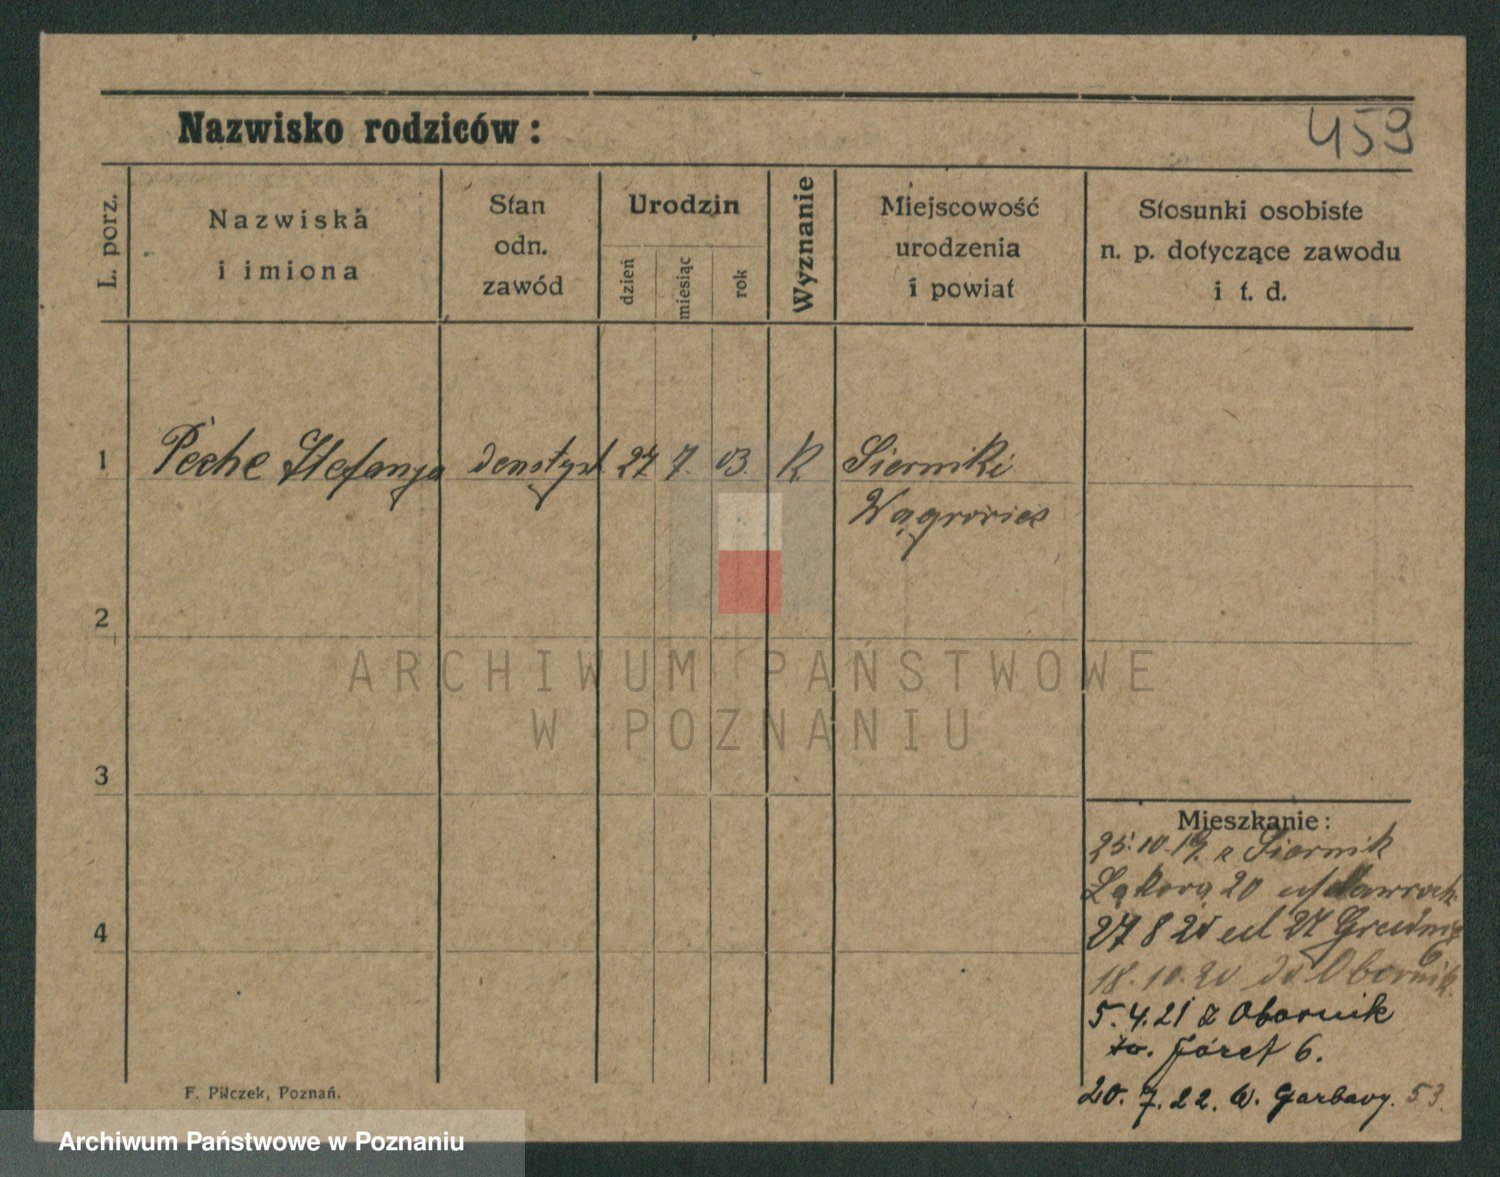 Nazwisko rodziców :
459
L. porz.
Nazwiska
i imiona
Stan
odn.
zawód
Urodzin
dzień
miesiąc
rok
Wyznanie
Miejscowość
urodzenia
i powiat
Stosunki osobiste
n. p. dotyczące zawodu
i t. d.
1 Peche Stefanja denstyst 27. 7. 03. K. Sierniki
Wągrowiec
2
3
4
Mieszkanie :
25.10.19. z Siernik
Łąkowa 20
27 8 20
18.10.20 do Obornik
5.4.21 z Obornik
Józef 6.
20. 7. 22. W. Garbary. 53.
F. Pilczek, Poznań.
ARCHIWUM PAŃSTWOWE
W POZNANIU
Archiwum Państwowe w Poznaniu